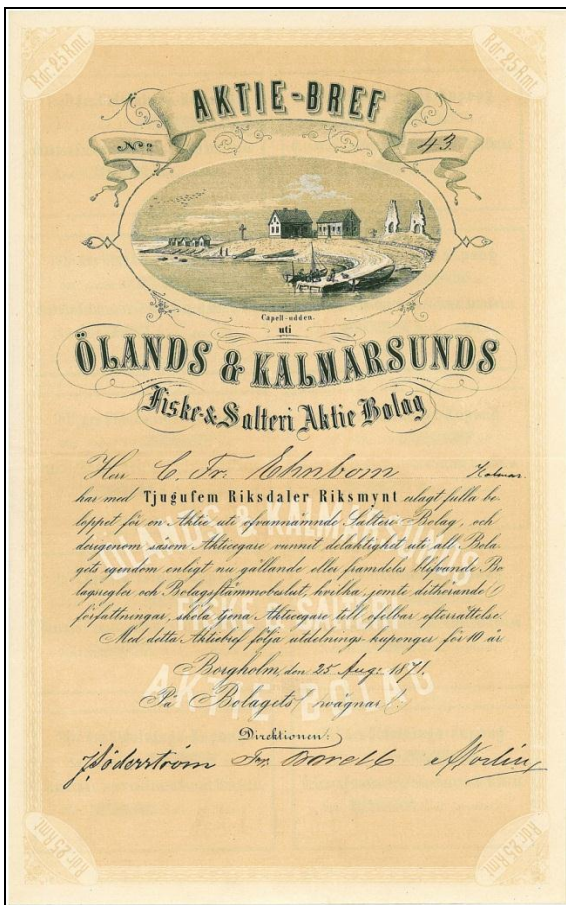 Rdr. 25 Rmt
Rdr. 25 Rmt
AKTIE-BREF
No 43.
Capell-udden.
uti
ÖLANDS & KALMARSUNDS
Fiske-& Salteri Aktie Bolag
Herr C. Fr. Ehnbom Kalmar.
har med Tjugufem Riksdaler Riksmynt erlagt fulla be-
loppet för en Aktie uti ofvannämnde Salteri-Bolag, och
derigenom såsom Aktieegare vunnit delaktighet uti all Bola-
gets egendom enligt nu gällande eller framdeles blifvande Bo-
lagsregler och Bolagsstämmobeslut, hvilka, jemte dithörande
författningar, skola tjena Aktieegare till ofelbar efterrättelse.
Med detta Aktiebref följa utdelnings-kuponger för 10 år
Borgholm, den 25 Aug: 1871.
På Bolagets vägnar:
Direktionen:
J. Söderström Fr. A Norlin
ÖLANDS & KALMARSUNDS
FISKE & SALTERI
AKTIE BOLAG
Rdr. 25 Rmt
Rdr. 25 Rmt